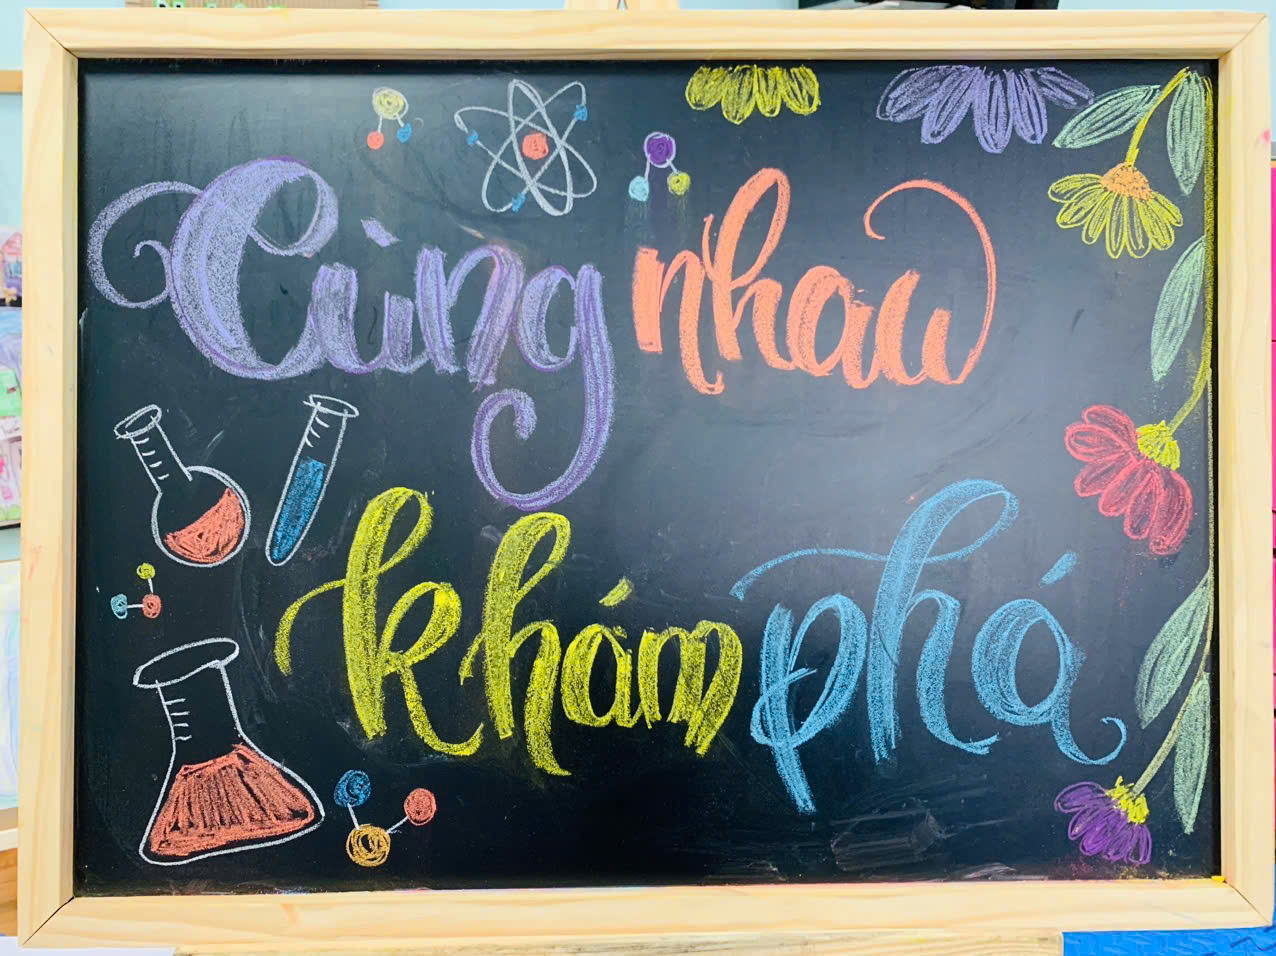 Cùng nhau
khám phá